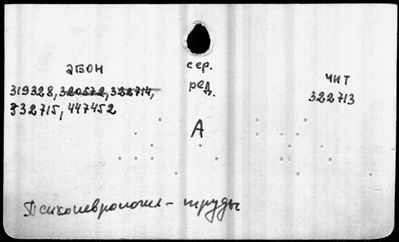 абон
319328, 320572, 322714,
332715, 447452
сер.
ред.
А
чит
322713
Психоневрология - труды